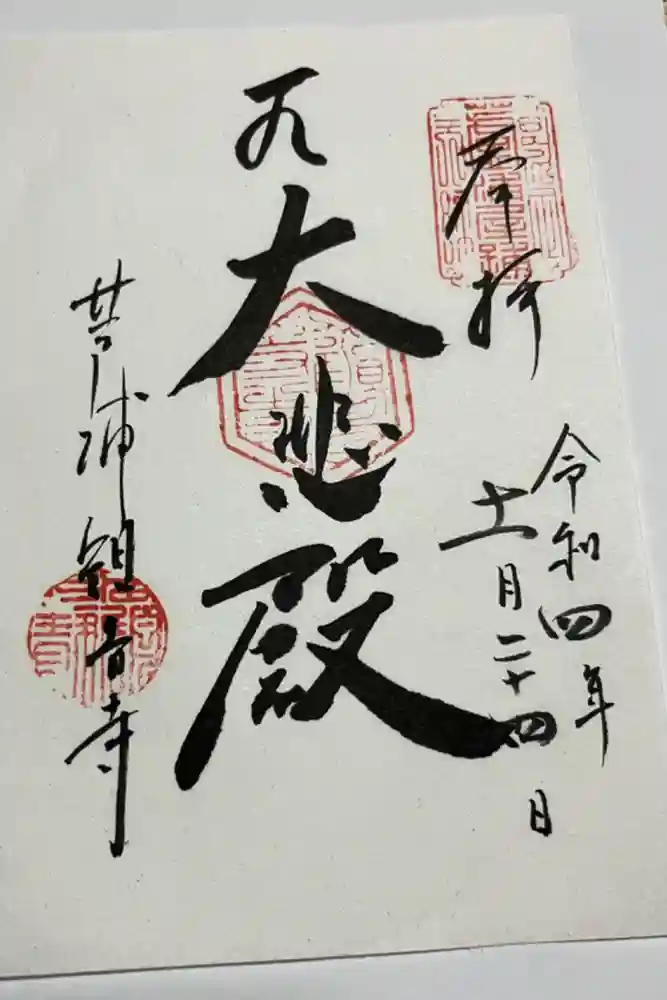 奉拝
令和四年
十一月二十四日
大悲殿
芦浦観音寺